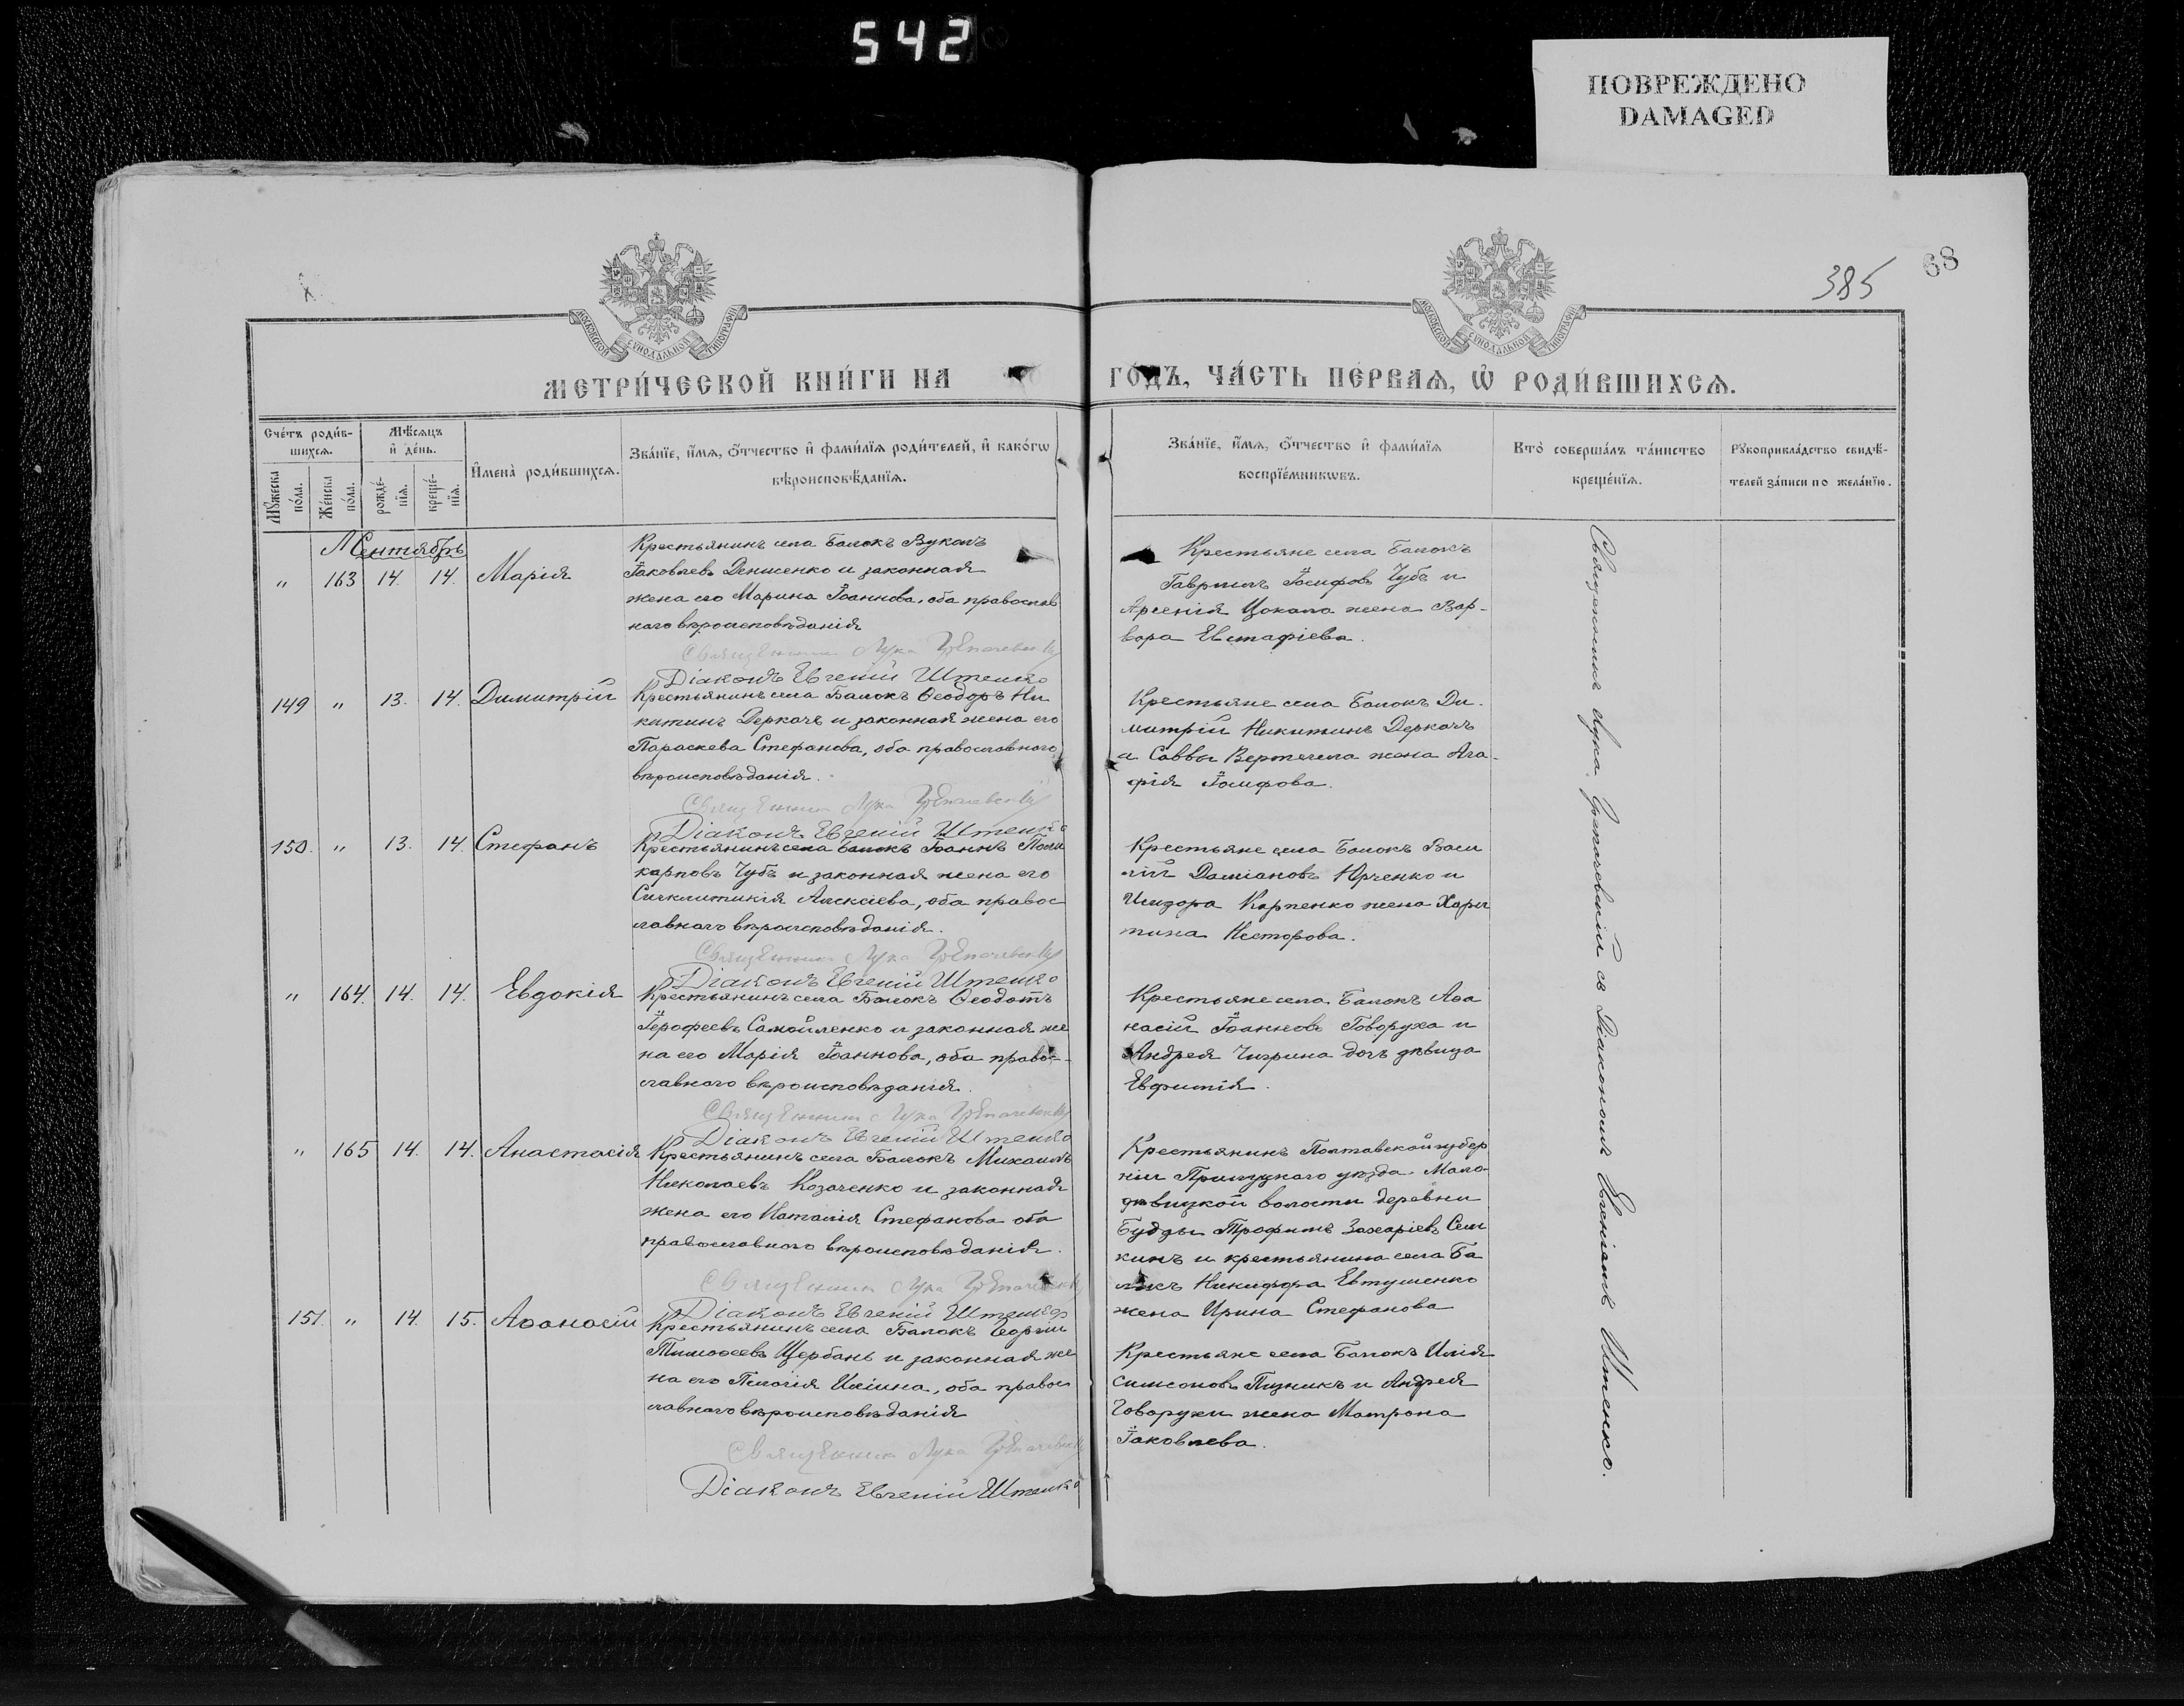 542
ПОВРЕЖДЕНО
DAMAGED
68
385
МОСКОВСКОЙ СУНОДАЛЬНОЙ ТИПОГРАФІИ
МОСКОВСКОЙ СУНОДАЛЬНОЙ ТИПОГРАФІИ
МЕТРИ́ЧЕСКОЙ КНИ́ГИ НА ГО́ДЪ, ЧА́СТЬ ПЕ́РВАѦ, Ѡ РОДИ́ВШИХСѦ.
Сче́тъ роди́в-
шихсѧ.
Мꙋ́жеска
по́ла.
Же́нска
по́ла.
Мѣ́сѧцъ
и҆ де́нь.
рожде́-
нїѧ.
креще́-
нїѧ.
И҆мена̀ роди́вшихсѧ.
Зва́нїе, и҆́мѧ, ѻ҆́тчество и҆ фамилїѧ роди́телей, и҆ како́гѡ
вѣроисповѣ́данїѧ.
Зва́нїе, и҆́мѧ, ѻ҆́тчество и҆ фами́лїѧ
воспрїе́мникѡвъ.
Кто̀ соверша́лъ та́инство
креще́нїѧ.
Рꙋкоприкла́дство свидѣ́-
телей за́писи по жела́нїю.
Сентябрь
" 163 14. 14. Марія
Крестьянинъ села Балокъ Вуколъ
Іаковлевъ Денисенко и законная
жена его Марина Іоаннова, оба православ
наго вѣроисповѣданія
Священникъ Лука
Діаконъ Евгеній Штенко
Крестьяне села Балокъ
Гавріилъ Іосифовъ Чубъ и
Арсенія Цокало жена Вар-
вара Евстафіева.
149 " 13. 14. Димитрій
Крестьянинъ села Балокъ Ѳеодоръ Ни
китинъ Деркачъ и законная жена его
Параскева Стефанова, оба православного
вѣроисповѣданія.
Священникъ Лука
Діаконъ Евгеній Штенко
Крестьяне села Балокъ Ди-
митрій Никитинъ Деркачъ
и Саввы Вертегела жена Ага-
фія Іосифова.
150. " 13. 14. Стефанъ
Крестьянинъ села Балокъ Іоаннъ Поли
карповъ Чубъ и законная жена его
Синклитикія Алексіева, оба правос
лавнаго вѣроисповѣданія.
Священникъ Лука
Діаконъ Евгеній Штенко
Крестьяне села Балокъ Васи
лій Даміановъ Юрченко и
Исидора Карпенко жена Хари
тина Несторова.
" 164. 14. 14. Евдокія
Крестьянинъ села Балокъ Ѳеодотъ
Іерофеевъ Самойленко и законная же
на его Марія Іоаннова, оба правос-
лавнаго вѣроисповѣданія.
Священникъ Лука
Діаконъ Евгеній Штенко
Крестьяне села Балокъ Аѳа
насій Іоанновъ Говоруха и
Андрея Чигрина дочь дѣвица
Евфимія.
" 165 14. 14. Анастасія
Крестьянинъ села Балокъ Михаилъ
Николаевъ Козаченко и законная
жена его Наталія Стефанова оба
православного вѣроисповѣданія.
Священникъ Лука
Діаконъ Евгеній Штенко
Крестьянинъ Полтавской губер
ніи Прилуцкаго уѣзда Мало-
дѣвицкой волости деревни
Будды Трофимъ Захаріевъ Сем
кинъ и крестьянина села Ба
локъ Никифора Евтушенко
жена Ирина Стефанова
151. " 14. 15. Аѳанасій
Крестьянинъ села Балокъ Георгій
Тимоѳеевъ Щербань и законная же
на его Пелагія Иліина, оба правос
лавнаго вѣроисповѣданія
Священникъ Лука
Діаконъ Евгеній Штенко
Крестьяне села Балокъ Илія
Симеоновъ Пизникъ и Андрея
Говорухи жена Матрона
Іаковлева.
Священникъ Лука съ Діакономъ Евгеніемъ Штенко.